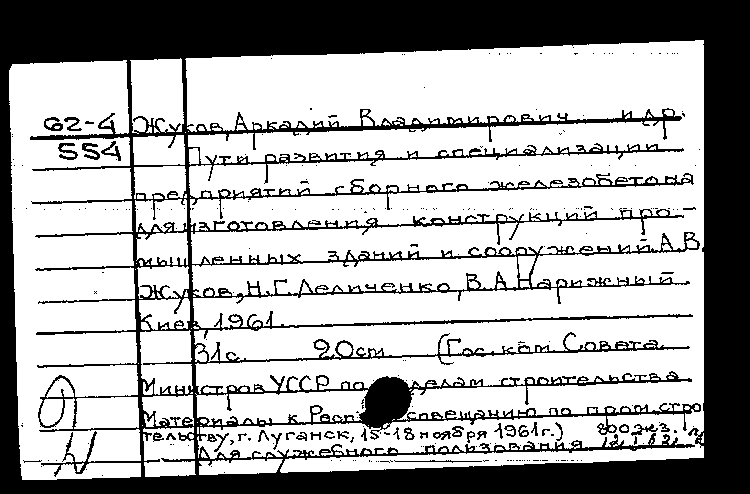 62-4 Жуков, Аркадий Владимирович и др.
554 Пути развития и специализации
предприятий сборного железобетона
для изготовления конструкций про-
мышленных зданий и сооружений А.В.
Жуков, Н.Г. Леличенко, В.А. Нарижный
Киев, 1961.
31с. 20см (Гос. ком Совета
Министров УССР по делам строительства
Материалы к Респ. совещанию по пром. строи
тельству, г. Луганск, 15-18 ноября 1961г.) 800 экз.
Для служебного пользования